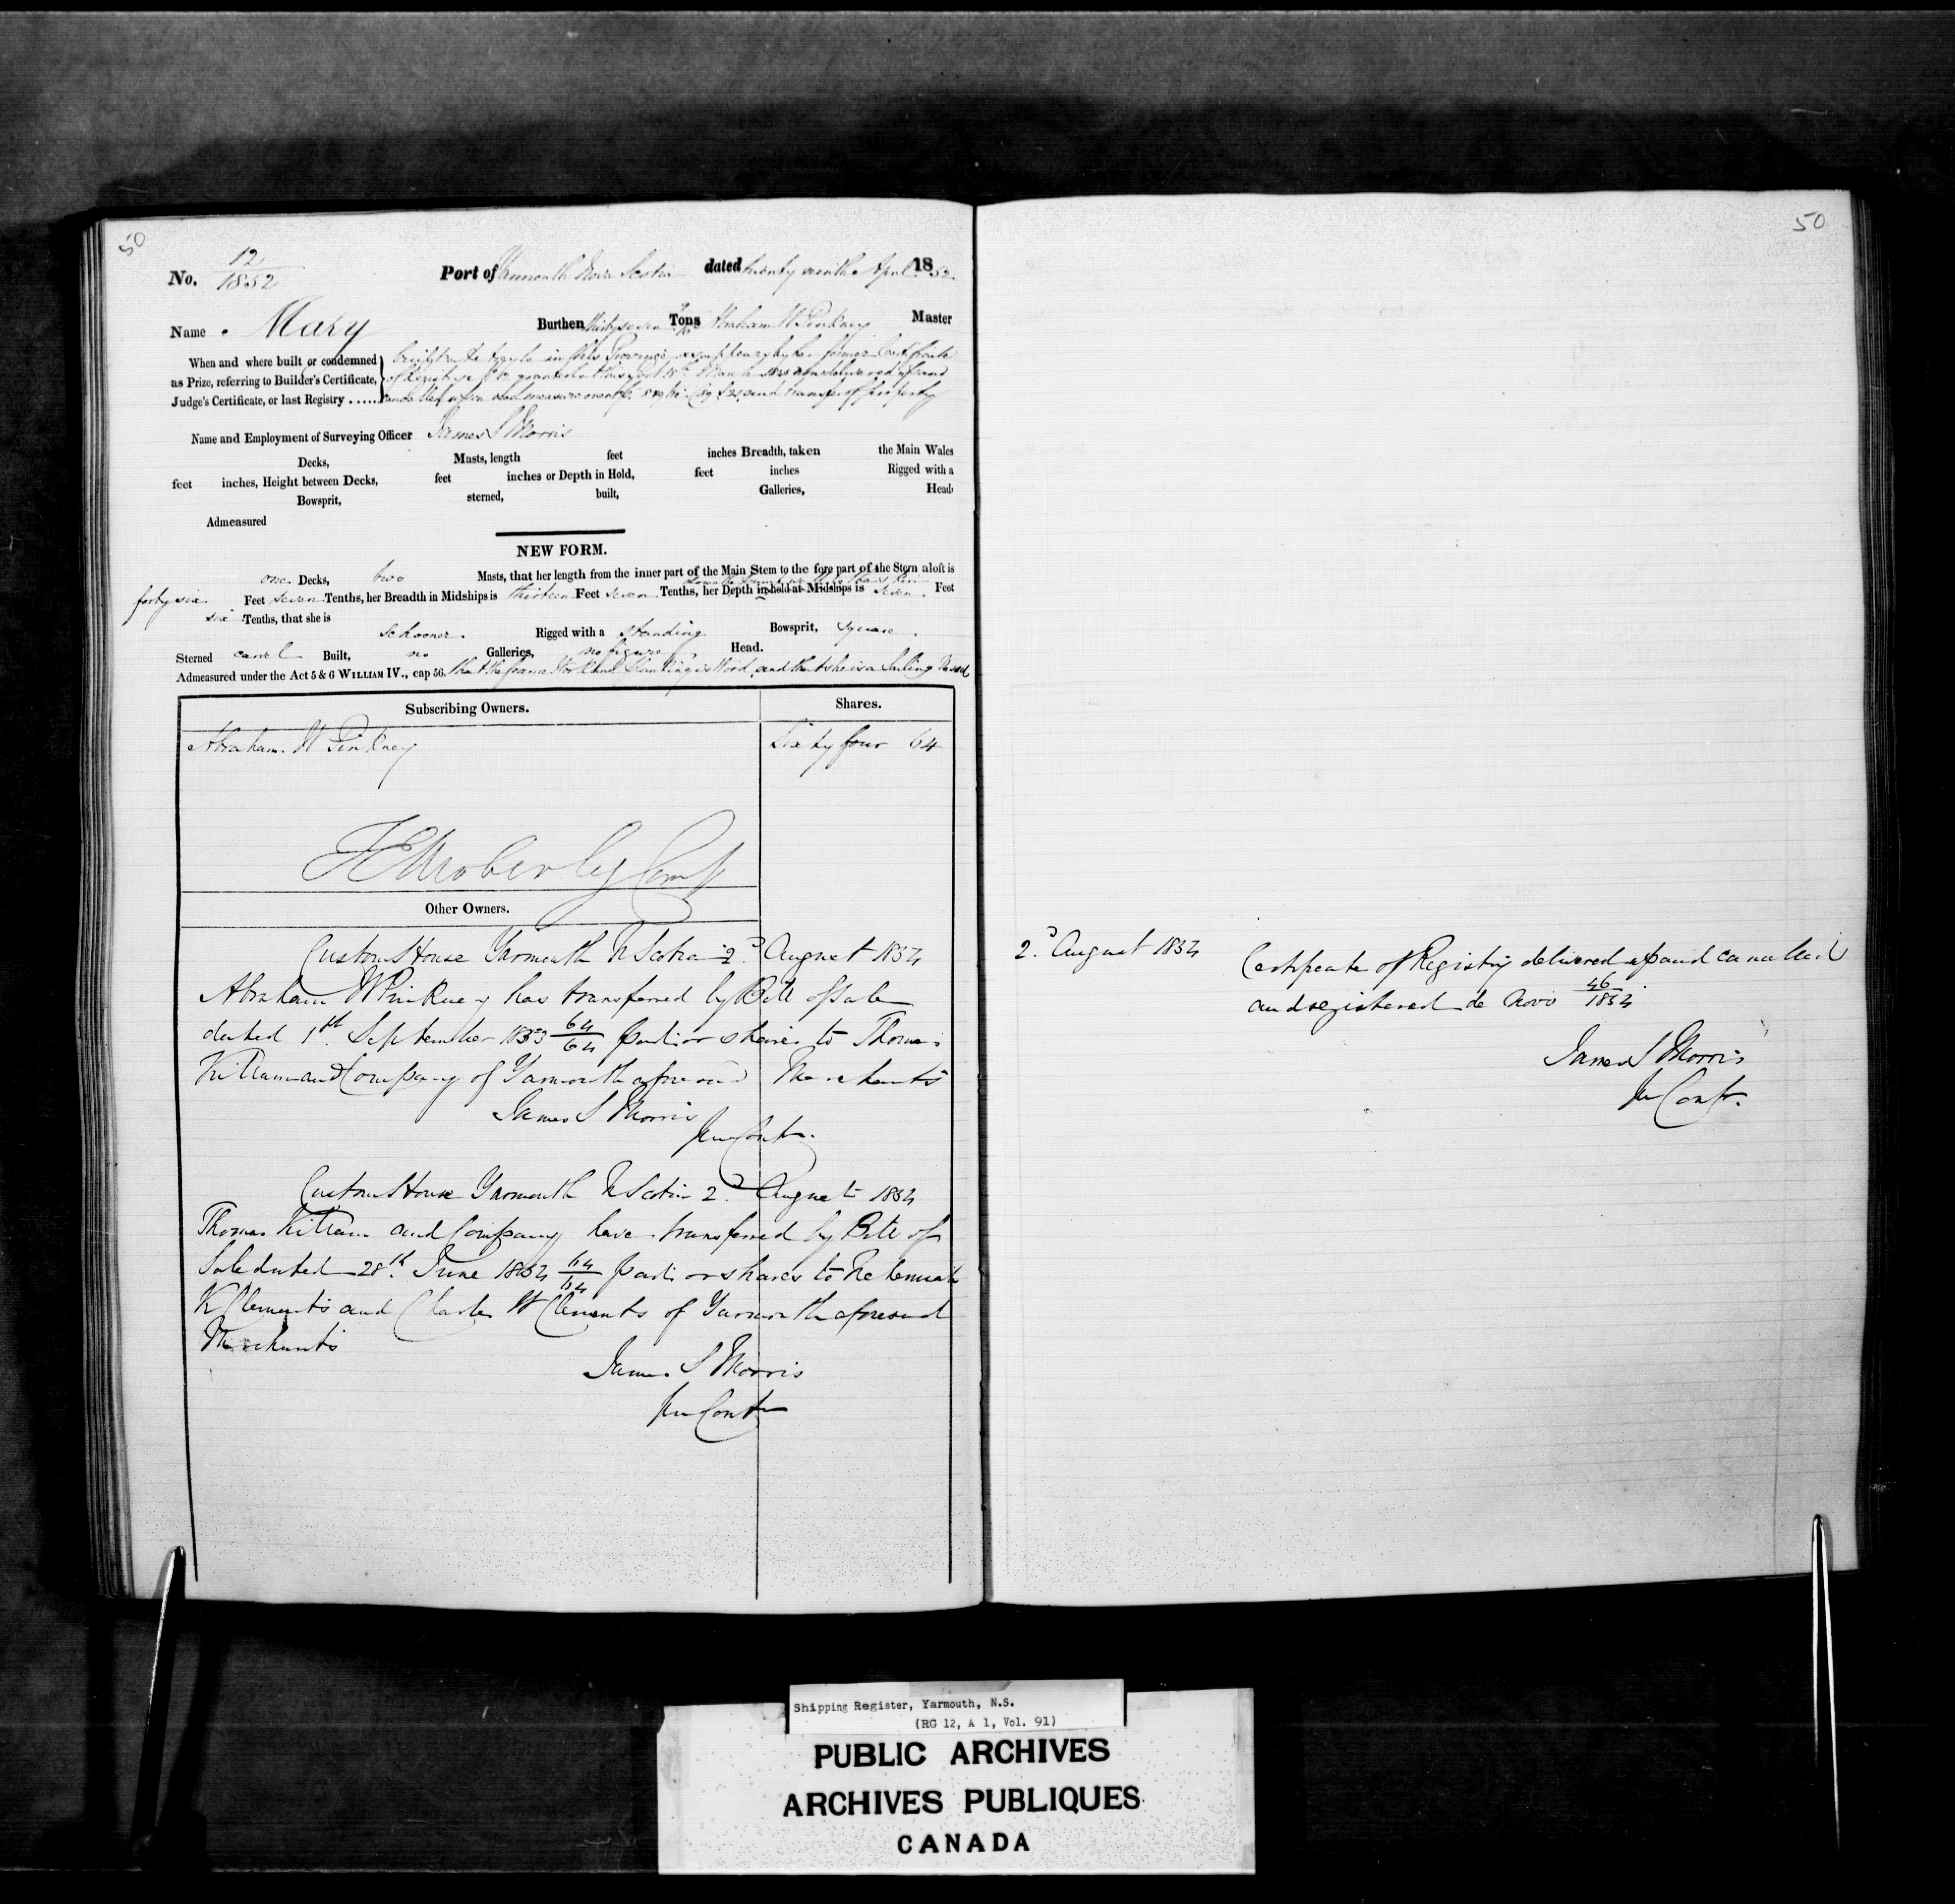 50
50
No. 12/1852 Port of Yarmouth Nova Scotia dated twenty ninth April 1852
Name Mary Burthen thirty seven Tons Abraham W Pinkney Master
When and where built or condemned
as Prize, referring to Builder's Certificate,
Judge's Certificate, or last Registry .....
in this Province as appears by her former Certificate
of Registry granted at this Port delivered up and
cancelled and transfer of property
Name and Employment of Surveying Officer James S Morris
Decks, Masts, length feet inches Breadth, taken the Main Wales
feet inches, Height between Decks, feet inches or Depth in Hold, feet inches Rigged with a
Bowsprit, sterned, built, Galleries, Head
Admeasured
NEW FORM.
one Decks, two Masts, that her length from the inner part of the Main Stem to the fore part of the Stern aloft is
forty six Feet seven Tenths, her Breadth in Midships is thirteen Feet seven Tenths, her Depth in hold at Midships is seven Feet
six Tenths, that she is schooner Rigged with a standing Bowsprit, square
Sterned carvel Built, no Galleries, no figure Head.
Admeasured under the Act 5 & 6 WILLIAM IV., cap 56. that the frame Work and Planking is Wood and that she is a Sailing Vessel
Subscribing Owners. Shares.
Abraham W Pinkney Sixty four 64
Other Owners.
Custom House Yarmouth N Scotia 2d August 1854
Abraham W Pinkney has transferred by Bill of Sale
dated 1st September 1853 64/64 parts or shares to Thomas
Killam and Company of Yarmouth aforesaid Merchants
James S Morris
Custom House Yarmouth N Scotia 2d August 1854
Thomas Killam and Company have transferred by Bill of
Sale dated 28th June 1854 64/64 parts or shares to Nehemiah
K Clements and Charles W Clements of Yarmouth aforesaid
Merchants
James S Morris
2d August 1854 Certificate of Registry delivered up and cancelled
and registered de Novo 46/1854
James S Morris
Shipping Register, Yarmouth, N.S.
(RG 12, A 1, Vol. 91)
PUBLIC ARCHIVES
ARCHIVES PUBLIQUES
CANADA